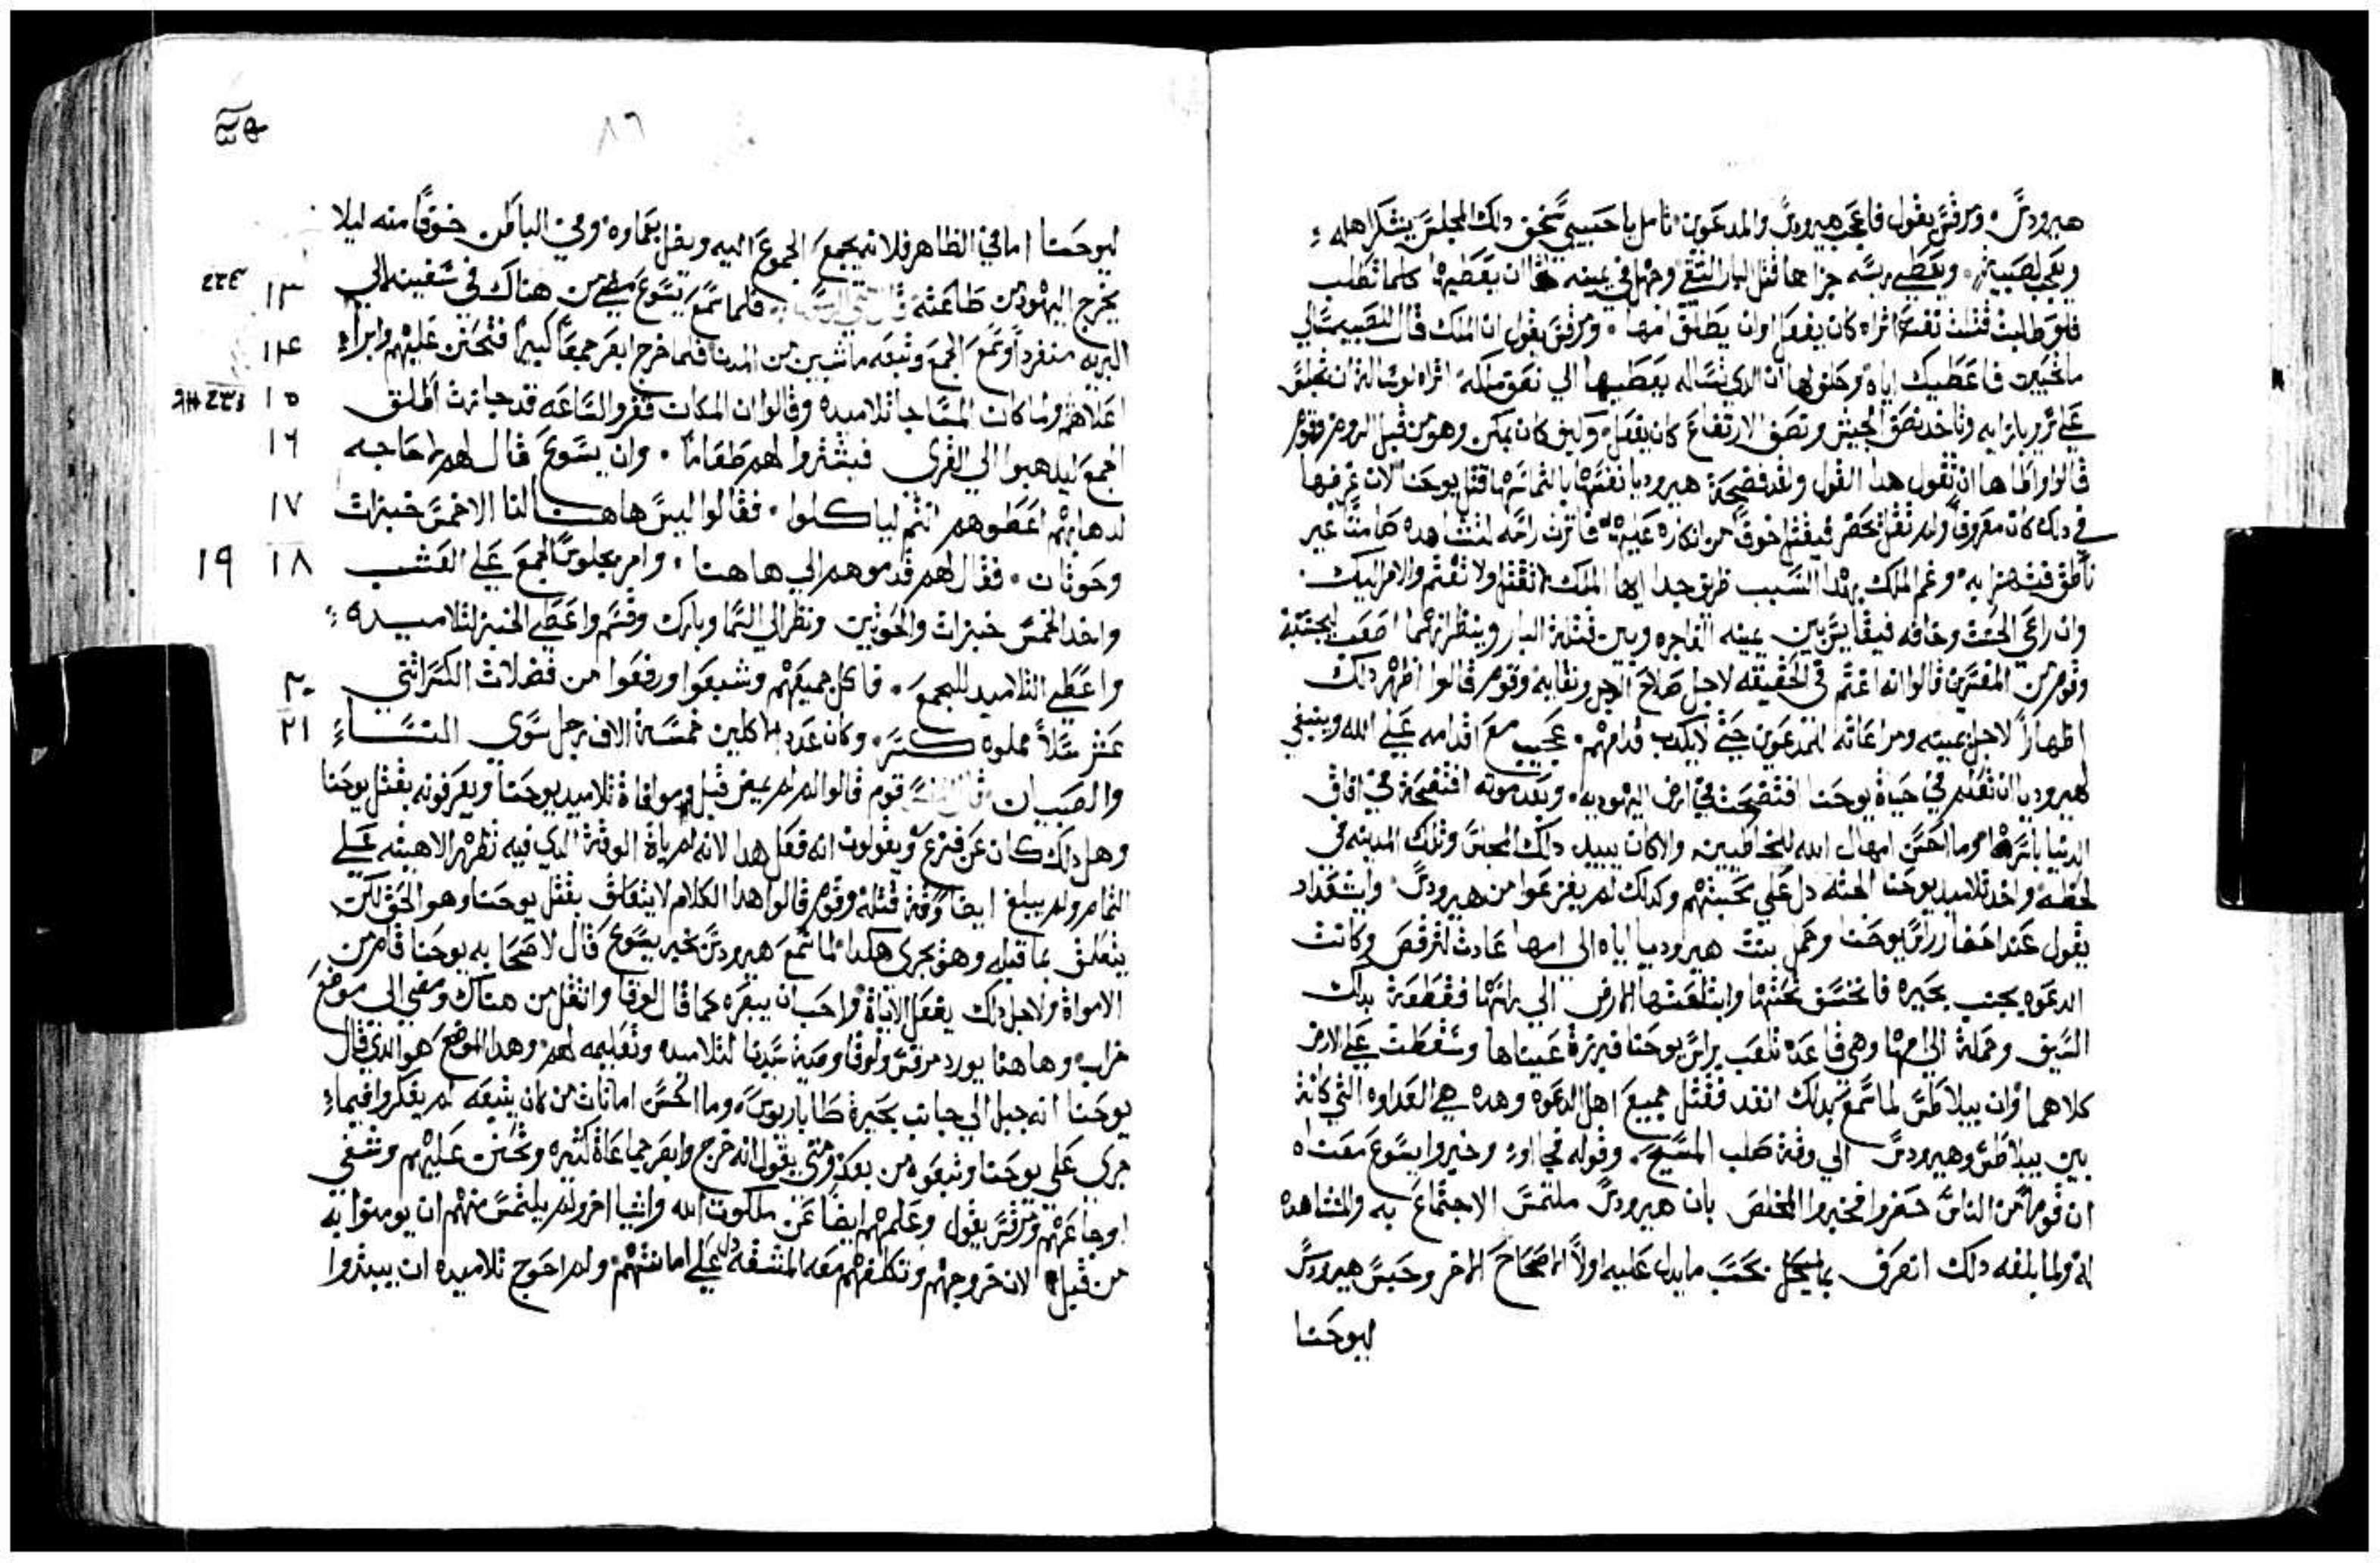 هيرودس. ومرقس يقول فاعجب هيرودس والمدعوين. تامل يا حبيبي سخف دلك المجلس يشكر اهله
ويعجب لصبية. ويعطي بسه جزاها قتل البار التقي وجهل في يمينه ان يعطيها كلما تطلب
فلو طلبت قتلت نفسه اتراه كان يفعل اوان يطلق امها. ومرقس يقول ان الملك قال للصبيه سالي
ما تحبين فاعطيك اياه وحلف لها ان الدي تساله يعطيها الي نصف مملكه اتراه لو سالته ان تجلس
علي سرير بازايه وتاخد نصف الجيش ونصف الارتفاع كان يفعل وكيف كان يمكن وهو من قبل الروم وقوم
قالوا امها ان تقول هدا القول ولقد فضحة هيروديا نفسها بالتماسها قتل يوحنا لان غرضها
في دلك كان معروفا ولم تقل يحضر فيقتل خوفا من انكاره عليه فاثرت راسه لتشاهده صامتا غير
ناطق فتهزا به وغم الملك بهدا السبب طريف جدا ايها الملك لا تقتل ولا تغتم والامر اليك.
وان راعي الحنث وخافه فيقايس بين يمينه الفاجره وبين قتلة البار وينظر ايهما اصعب
وقوم من المفسرين قالوا انه اغتم في الحقيقه لاجل صلاح الرجل ونقايه وقوم قالوا اظهر دلك
اظهارا لاجل يمينه ومراعاته للمدعوين حتي لا يكدب قدامهم. عجيب مع اقدامه علي الله وينبغي
لهيروديا ان تعلم في حياة يوحنا افتضحت في ارض اليهوديه. وبعد موته افتضحة في افاق
الدنيا باسرها وما احسن امهال الله للخاطيين والا كان يبيد دلك المجلس وتلك المدينه في
لحظه واخد تلاميد يوحنا الجثه دل علي محبتهم وكدلك لم يفزعوا من هيرودس. واستعداد
يقول عند احضار راس يوحنا وحمل بنت هيروديا اياه الي امها عادت لترقص وكانت
الدعوه بجنب بحيره فانخسف تحتها وابتلعتها الارض الي راسها فقطعة بدلك
السيف وحملة الي امها وهي قاعدة تلعب براس يوحنا فبرزة عيناها وسقطت علي الارض
كلاهما وان بيلاطس لما سمع بدلك انفد فقتل جميع اهل الدعوه وهده هي العداوه التي كانة
بين بيلاطس وهيرودس الي وقة صلب المسيح. وقوله فجاوا وخبروا يسوع معناه
ان قوما من الناس حضروا فخبروا المخلص بان هيرودس ملتمس الاجتماع به والمشاهده
له ولما بلغه دلك انصرف بحسب ما يدل عليه اولا الاصحاح الاخر وحبس هيرودس
ليوحنا
٨٦
ليوحنا اما في الظاهر فلانه يجمع الجموع اليه ويضل بعماده وفي الباطن خوفا منه ليلا
يخرج اليهود من طاعته قال متي فلما سمع يسوع مضي من هناك في سفينه الي ١٣
البريه منفردا وسمع الجمع وتبعه ماشيين من المدن فلما خرج ابصر جمعا كبيرا فتحنن عليهم وابراء ١٤
اعلاهم ولما كان المسا جا تلاميده وقالوا ان المكان قفر والساعه قد جازت اطلق ١٥
الجمع ليدهبوا الي القري فيشتروا لهم طعاما. وان يسوع قال لهم لا حاجه ١٦
لدهابهم اعطوهم انتم لياكلوا. فقالوا ليس هاهنا لنا الا خمس خبزات ١٧
وحوتان. فقال لهم قدموهم الي هاهنا. وامر بجلوس الجمع علي العشب ١٨ ١٩
واخد الخمس خبزات والحوتين ونظر الي السما وبارك وقسم واعطي الخبز لتلاميده
واعطي التلاميد للجمع. فاكل جميعهم وشبعوا ورفعوا من فضلات الكسر اثني ٢٠
عشر سلا مملوه كسر. وكان عدد الاكلين خمسة الاف رجل سوي النساء ٢١
والصبيان قوم قالوا لم لم يمض قبل موافاة تلاميد يوحنا ويعرفونه بقتل يوحنا
وهل دلك كان عن فزع ويقولون انه فعل هدا لانه لم ياة الوقة الدي فيه تظهر الاهيته علي
التمام ولم يبلغ ايضا وقة قتله وقوم قالوا هدا الكلام لا يتعلق بقتل يوحنا وهو الحق لكن
يتعلق بما قبله وهو يجري هكدا لما سمع هيرودس بخبر يسوع قال لاصحابه يوحنا قام من
الامواة ولاجل دلك يفعل الاياة واحب ان يبصره كما قال لوقا وانتقل من هناك ومضي الي موضع
خراب وهاهنا يورد مرقس ولوقا وصية سيدنا لتلاميده وتعليمه لهم وهدا الموضع هو الدي قال
يوحنا انه جبل الي جانب بحيرة طاباريوس. وما احسن امانات من كان يتبعه لم يفكروا فيماء
جري علي يوحنا وتبعوه من بعد ومتي يقول انه خرج وابصر جماعاة كثيره وتحنن عليهم وشفي
اوجاعهم ومرقس يقول وعلمهم ايضا عن ملكوت الله واشيا اخر ولم يلتمس منهم ان يومنوا به
من قبل لان خروجهم وتكلفهم معه المشقه دل علي امانتهم ولم احوج تلاميده ان يبتدوا